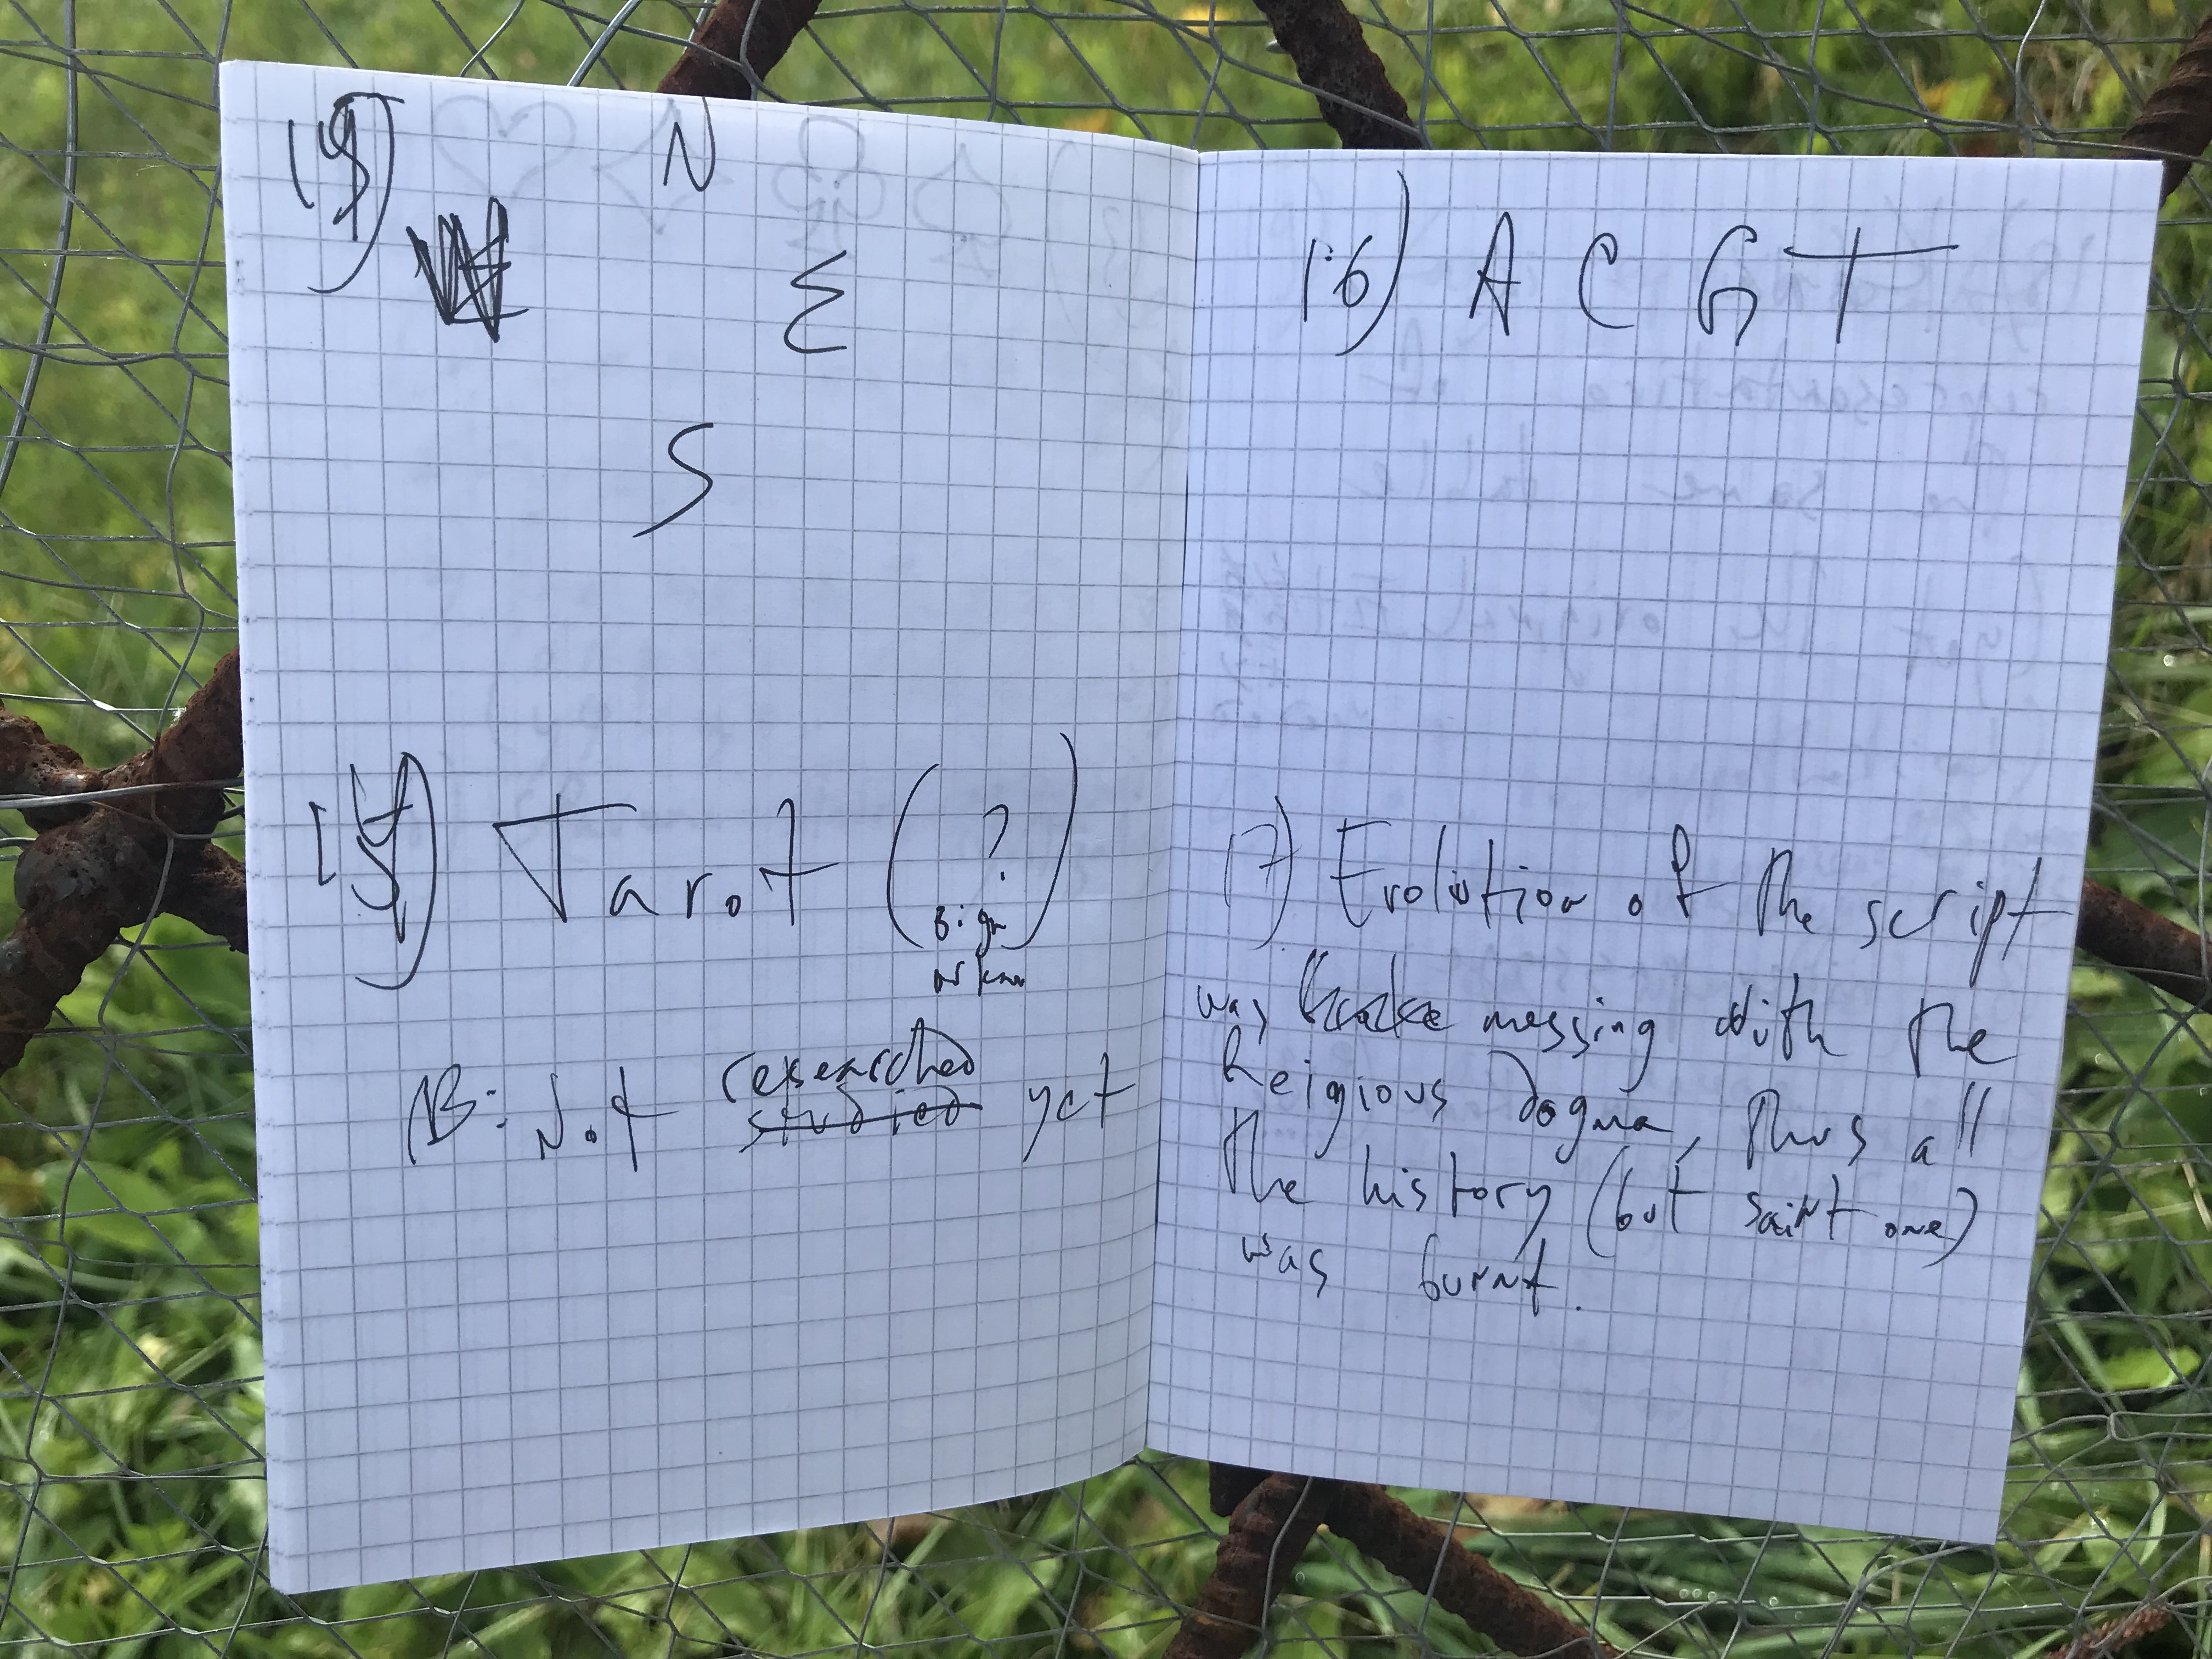 N
E
S
Tarot (?)
NB: Not researched yet
studied
16) A C G T
17) Evolution of the script
was messing with the
Reigious dogma, thus all
the history (but saint one)
was burnt.